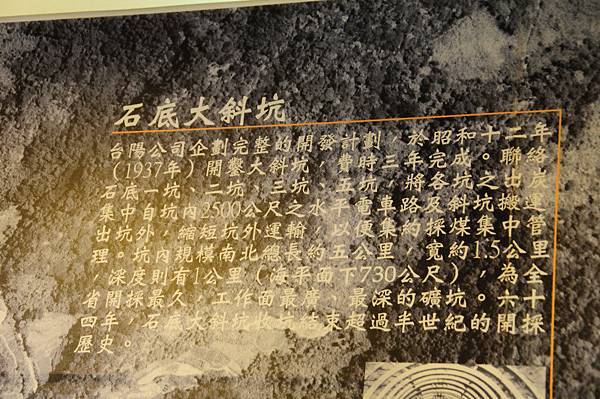 石底大斜坑
台陽公司企劃完整的開發計劃，於昭和十二年
（1937年）開鑿大斜坑，費時三年完成。聯絡
石底一坑、二坑、三坑、五坑，將各坑之出炭
集中自坑內2500公尺之水平電車路及斜坑搬運
出坑外，縮短坑外運輸，以便集約採煤集中管
理。坑內規模南北總長約五公里，寬約1.5公里
，深度則有1公里（海平面下730公尺），為全
省開採最久，工作面最廣、最深的礦坑。六十
四年，石底大斜坑收坑結束超過半世紀的開採
歷史。